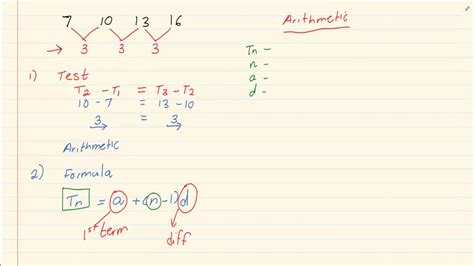 7 10 13 16
3 3 3
Arithmetic
Tn -
n -
a -
d -
1) Test
T2 - T1 = T3 - T2
10 - 7 = 13 - 10
3 = 3
Arithmetic
2) Formula
Tn = a + (n-1)d
1st term
diff